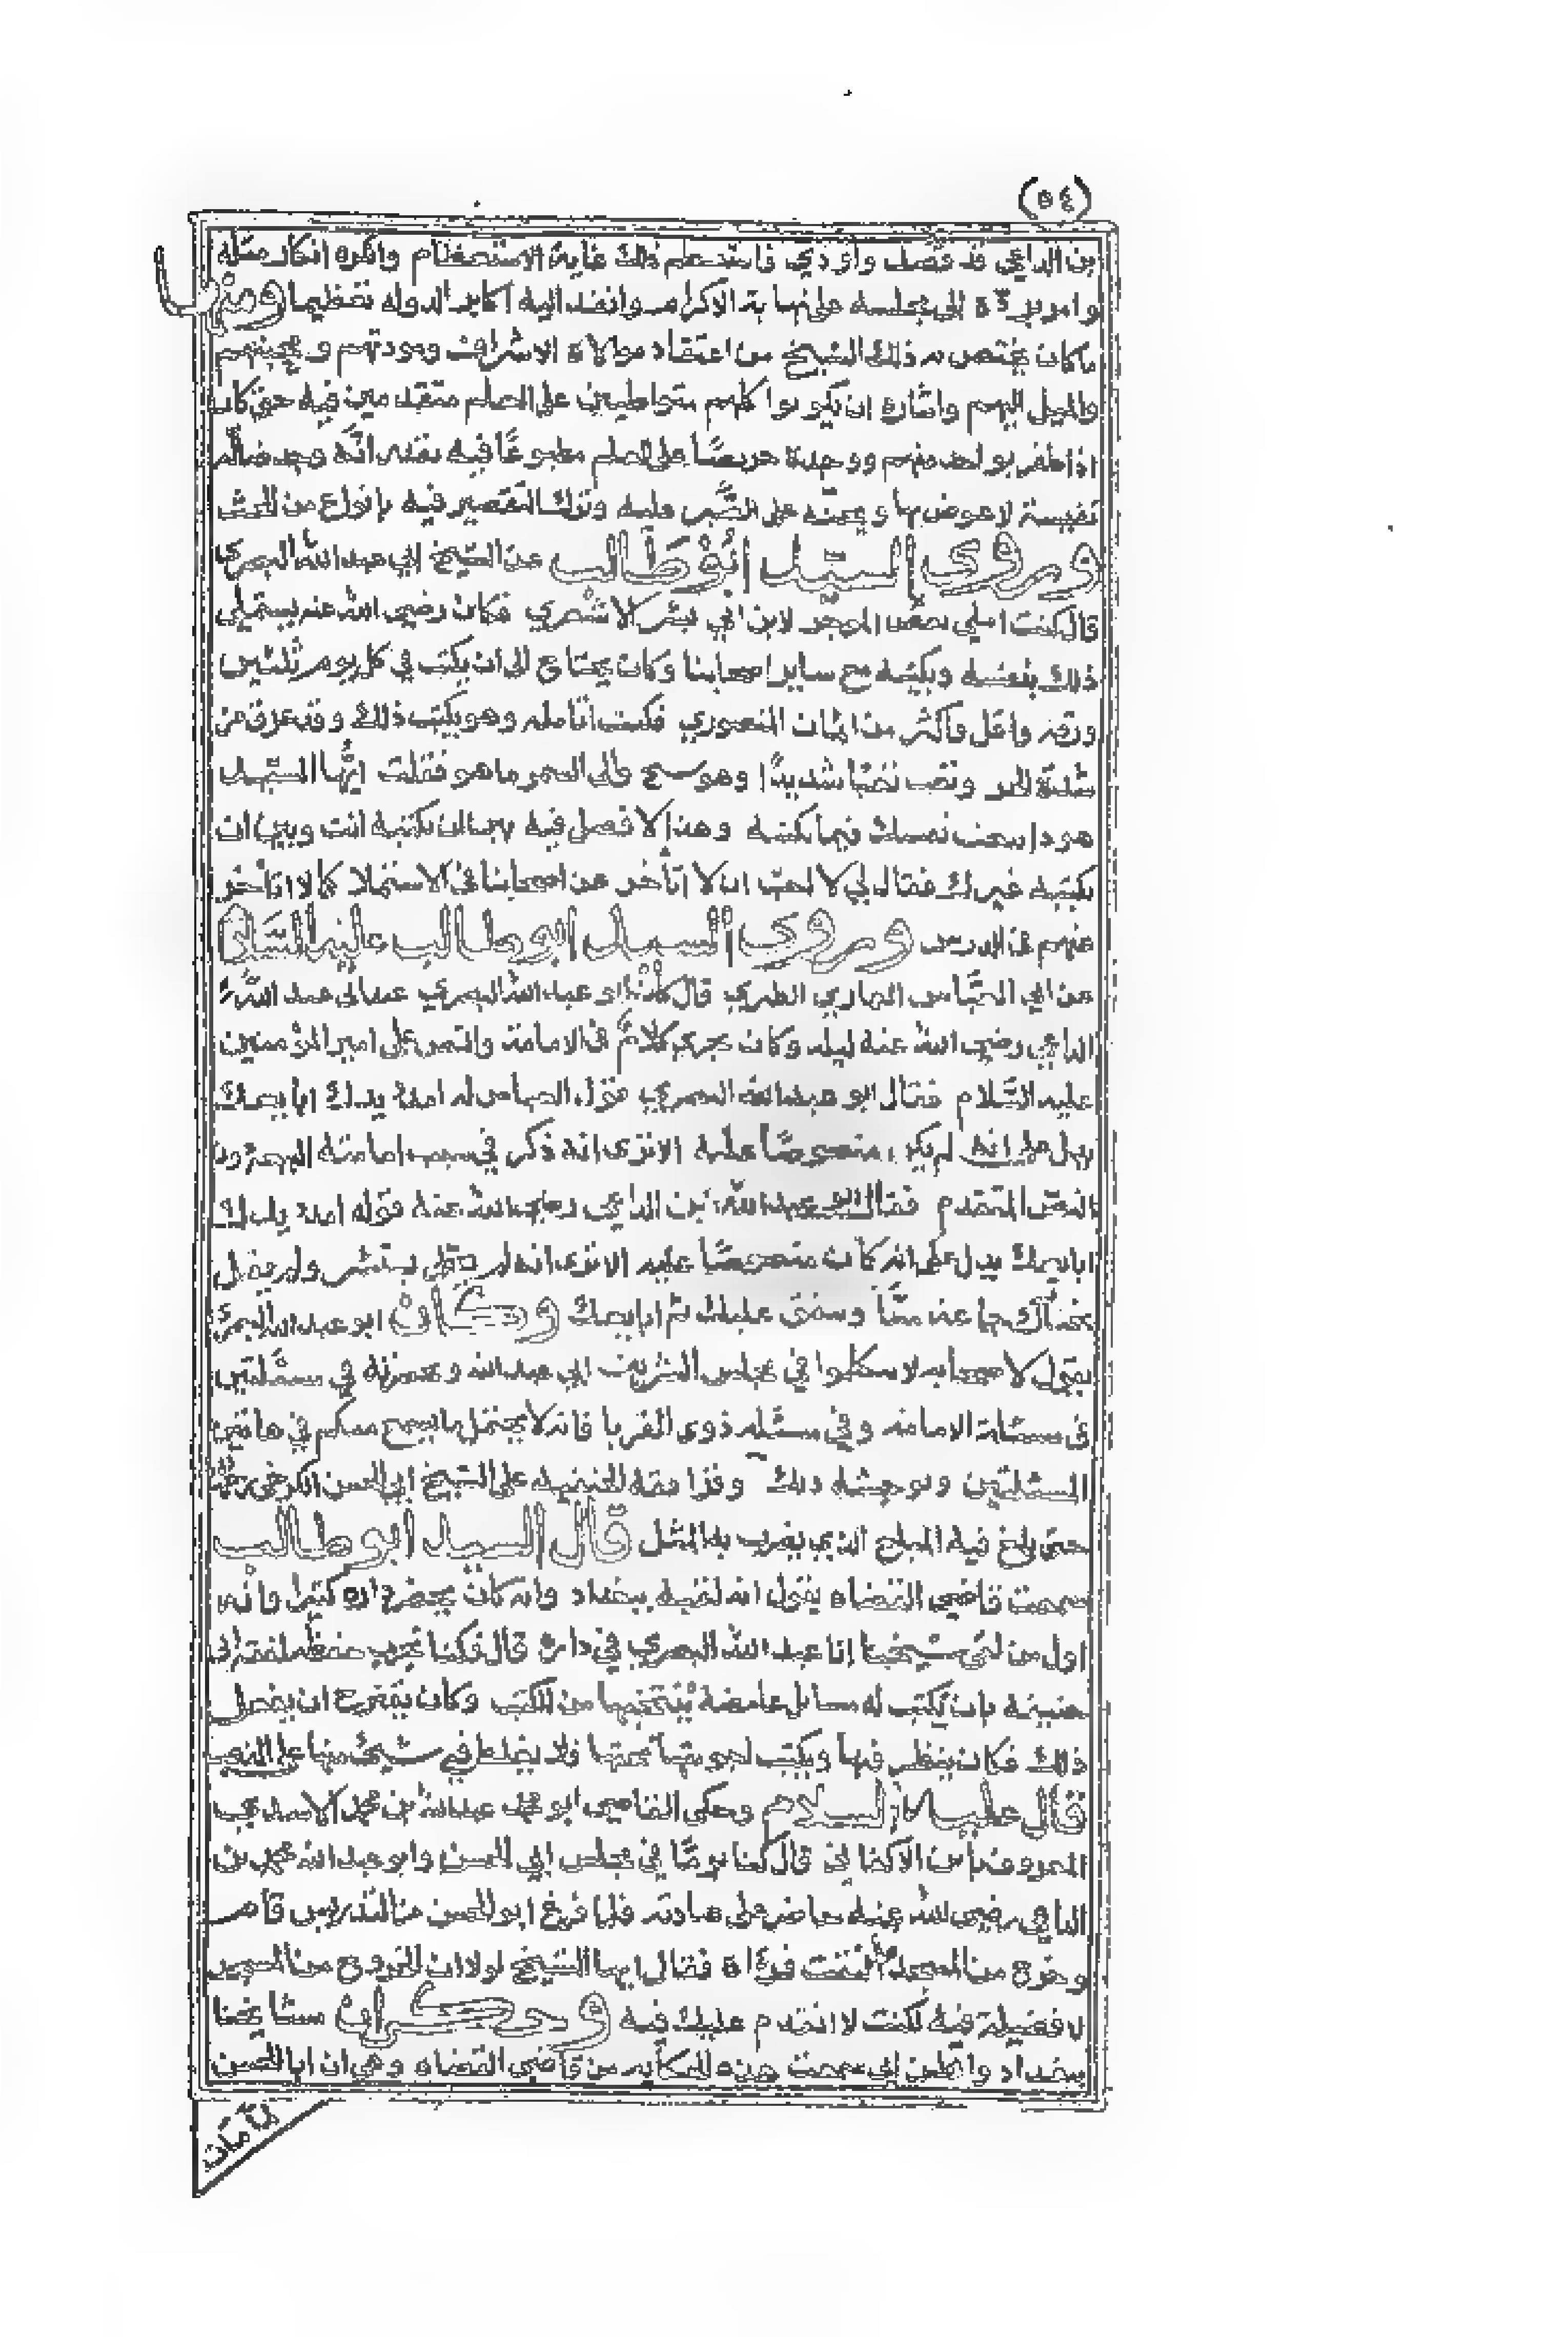 (٥٤)
بن الداعي قد فصل واوذي فاستعظم ذلك غاية الاستعظام وانكره انكار مثله
وامر برده الى مجلسه على نهاية الاكرام وانفذ اليه اكابر الدوله تعظيما ومنها
ما كان يختص به ذلك الشيخ من اعتقاد موالاة الاشراف ومودتهم ومحبتهم
والميل اليهم وايثاره ان يكونوا كلهم متواطيين على العلم متقدمين فيه حتى كان
اذا ظفر بواحد منهم ووجده حريصا على العلم مطبوعا فيه يعتد انه وجد ضالة
نفيسة لا عوض بها ويحثه على الصبر عليه وترك التقصير فيه بانواع من الحث
وروى السيد ابوطالب عن الشيخ ابي عبد الله البصري
قال كنت املي نقض الموجز لابن ابي بشر الاشعري فكان رضي الله عنه يستملي
ذلك بنفسه ويكتبه مع ساير اصحابنا وكان يحتاج الى ان يكتب في كل يوم ثلثين
ورقه واقل واكثر من المنصوري فكنت اتامله وهو يكتب ذلك وقد عرق من
شدة الحر وتعب تعبا شديدا وهو فقلت ايها السيد
هوذا تعب نفسك فيما تكتبه وهذا لا فصل فيه بين ان تكتبه انت وبين ان
يكتبه غيرك فقال لي لا احب ان لا اتأخر عن اصحابنا في الاستملا كما لا اتاخر
عنهم في الدرس وروى السيد ابوطالب عليه السلام
عن ابي العباس الطبري قال كان ابو عبد الله البصري عند ابي عبد الله
الداعي رضي الله عنه ليله وكان جرى كلام في الامامة والنص على امير المؤمنين
عليه السلام فقال ابو عبد الله البصري قول العباس له امدد يدك ابايعك
يدل على انه لم يكن منصوصا عليه الا ترى انه ذكر في سبب امامته
النص المتقدم فقال ابو عبد الله بن الداعي رضي الله عنه قوله امدد يدك
ابايعك يدل على انه كان منصوصا عليه الا ترى انه لم يقل ولم يقل
ثم ابايعك وكان ابو عبد الله البصري
يقول لاصحابه لا تتكلموا في مجلس الشريف ابي عبد الله وحضرته في مسئلتين
في مسئلة الامامه وفي مسئله ذوي القربا فانه لا يحتمل ما يسمع منكم في هاتين
المسئلتين ويوحشه ذلك وقرا فقه الحنفيه على الشيخ ابي الحسن الكرخي
حتى بلغ فيه المبلغ الذي يضرب به المثل قال السيد ابوطالب
سمعت قاضي القضاه يقول انه لقيه ببغداد وانه كان يحضر داره كثيرا وانه
اول من لقي شيخنا ابا عبد الله البصري في داره قال فكنا نجرب حفظه لفقه ابي
حنيفه بان نكتب له مسائل غامضة ننتخبها من الكتب وكان يقترح ان يفعل
ذلك فكان ينظر فيها ويكتب اجوبتها تحتها فلا يغلط في شيئ منها
قال عليه السلام وحكى القاضي ابو محمد عبد الله بن محمد الاسدي
المعروف بابن الاكفاني قال كنا يوما في مجلس ابي الحسن وابو عبد الله محمد بن
الداعي رضي الله عنه حاضر على عادته فلما فرغ ابو الحسن من التدريس قام
وخرج من المسجد فقال ايها الشيخ لولا ان الخروج من المسجد
لا فضيلة فيه لكنت لا اتقدم عليك فيه وحكى مشائخنا
ببغداد واظن اني سمعت هذه الحكايه من قاضي القضاه وهي ان ابا الحسن
لما مات